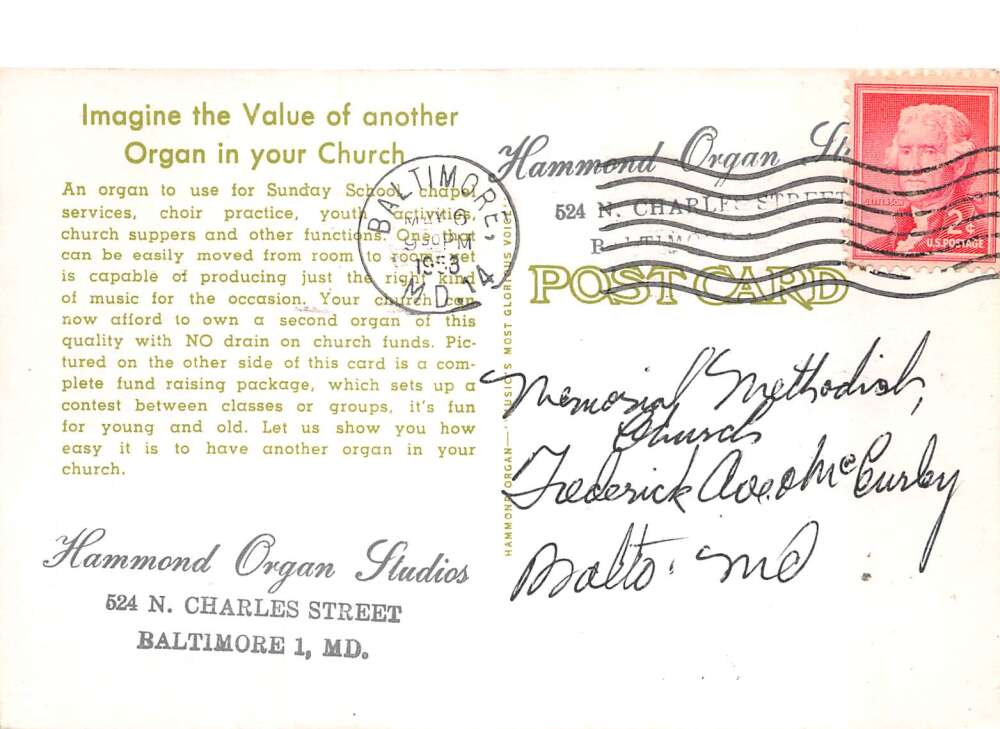 Imagine the Value of another
Organ in your Church
An organ to use for Sunday School, chapel
services, choir practice, youth activities,
church suppers and other functions. One that
can be easily moved from room to room yet
is capable of producing just the right kind
of music for the occasion. Your church can
now afford to own a second organ of this
quality with NO drain on church funds. Pic-
tured on the other side of this card is a com-
plete fund raising package, which sets up a
contest between classes or groups, it's fun
for young and old. Let us show you how
easy it is to have another organ in your
church.
Hammond Organ Studios
524 N. CHARLES STREET
BALTIMORE 1, MD.
BALTIMORE,
9 30 PM
MD. 14
HAMMOND ORGAN—"MUSIC'S MOST GLORIOUS VOICE"
Hammond Organ
524 N. CHARLES STREET
JEFFERSON
2¢
U.S. POSTAGE
POST CARD
Memorial Methodist
Church
Frederick Ave & McCurley
Balto. Md